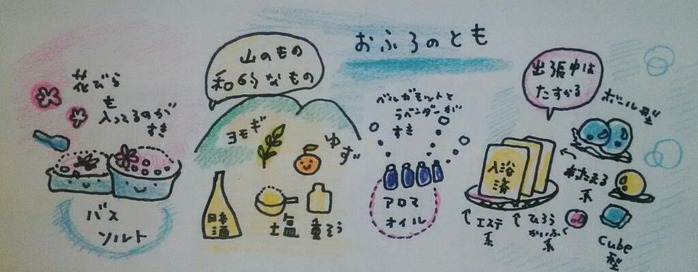 おふろのとも
花びら
も
入ってるのが
すき
バス
ソルト
山のもの
和的なもの
ヨモギ
ゆず
日本酒
塩
重そう
ベルガモットと
ラベンダーが
すき
アロマ
オイル
出張中は
たすかる
入浴
済
エステ
系
ひろう
かいふく
系
あたたまる
系
ボール型
cube
型